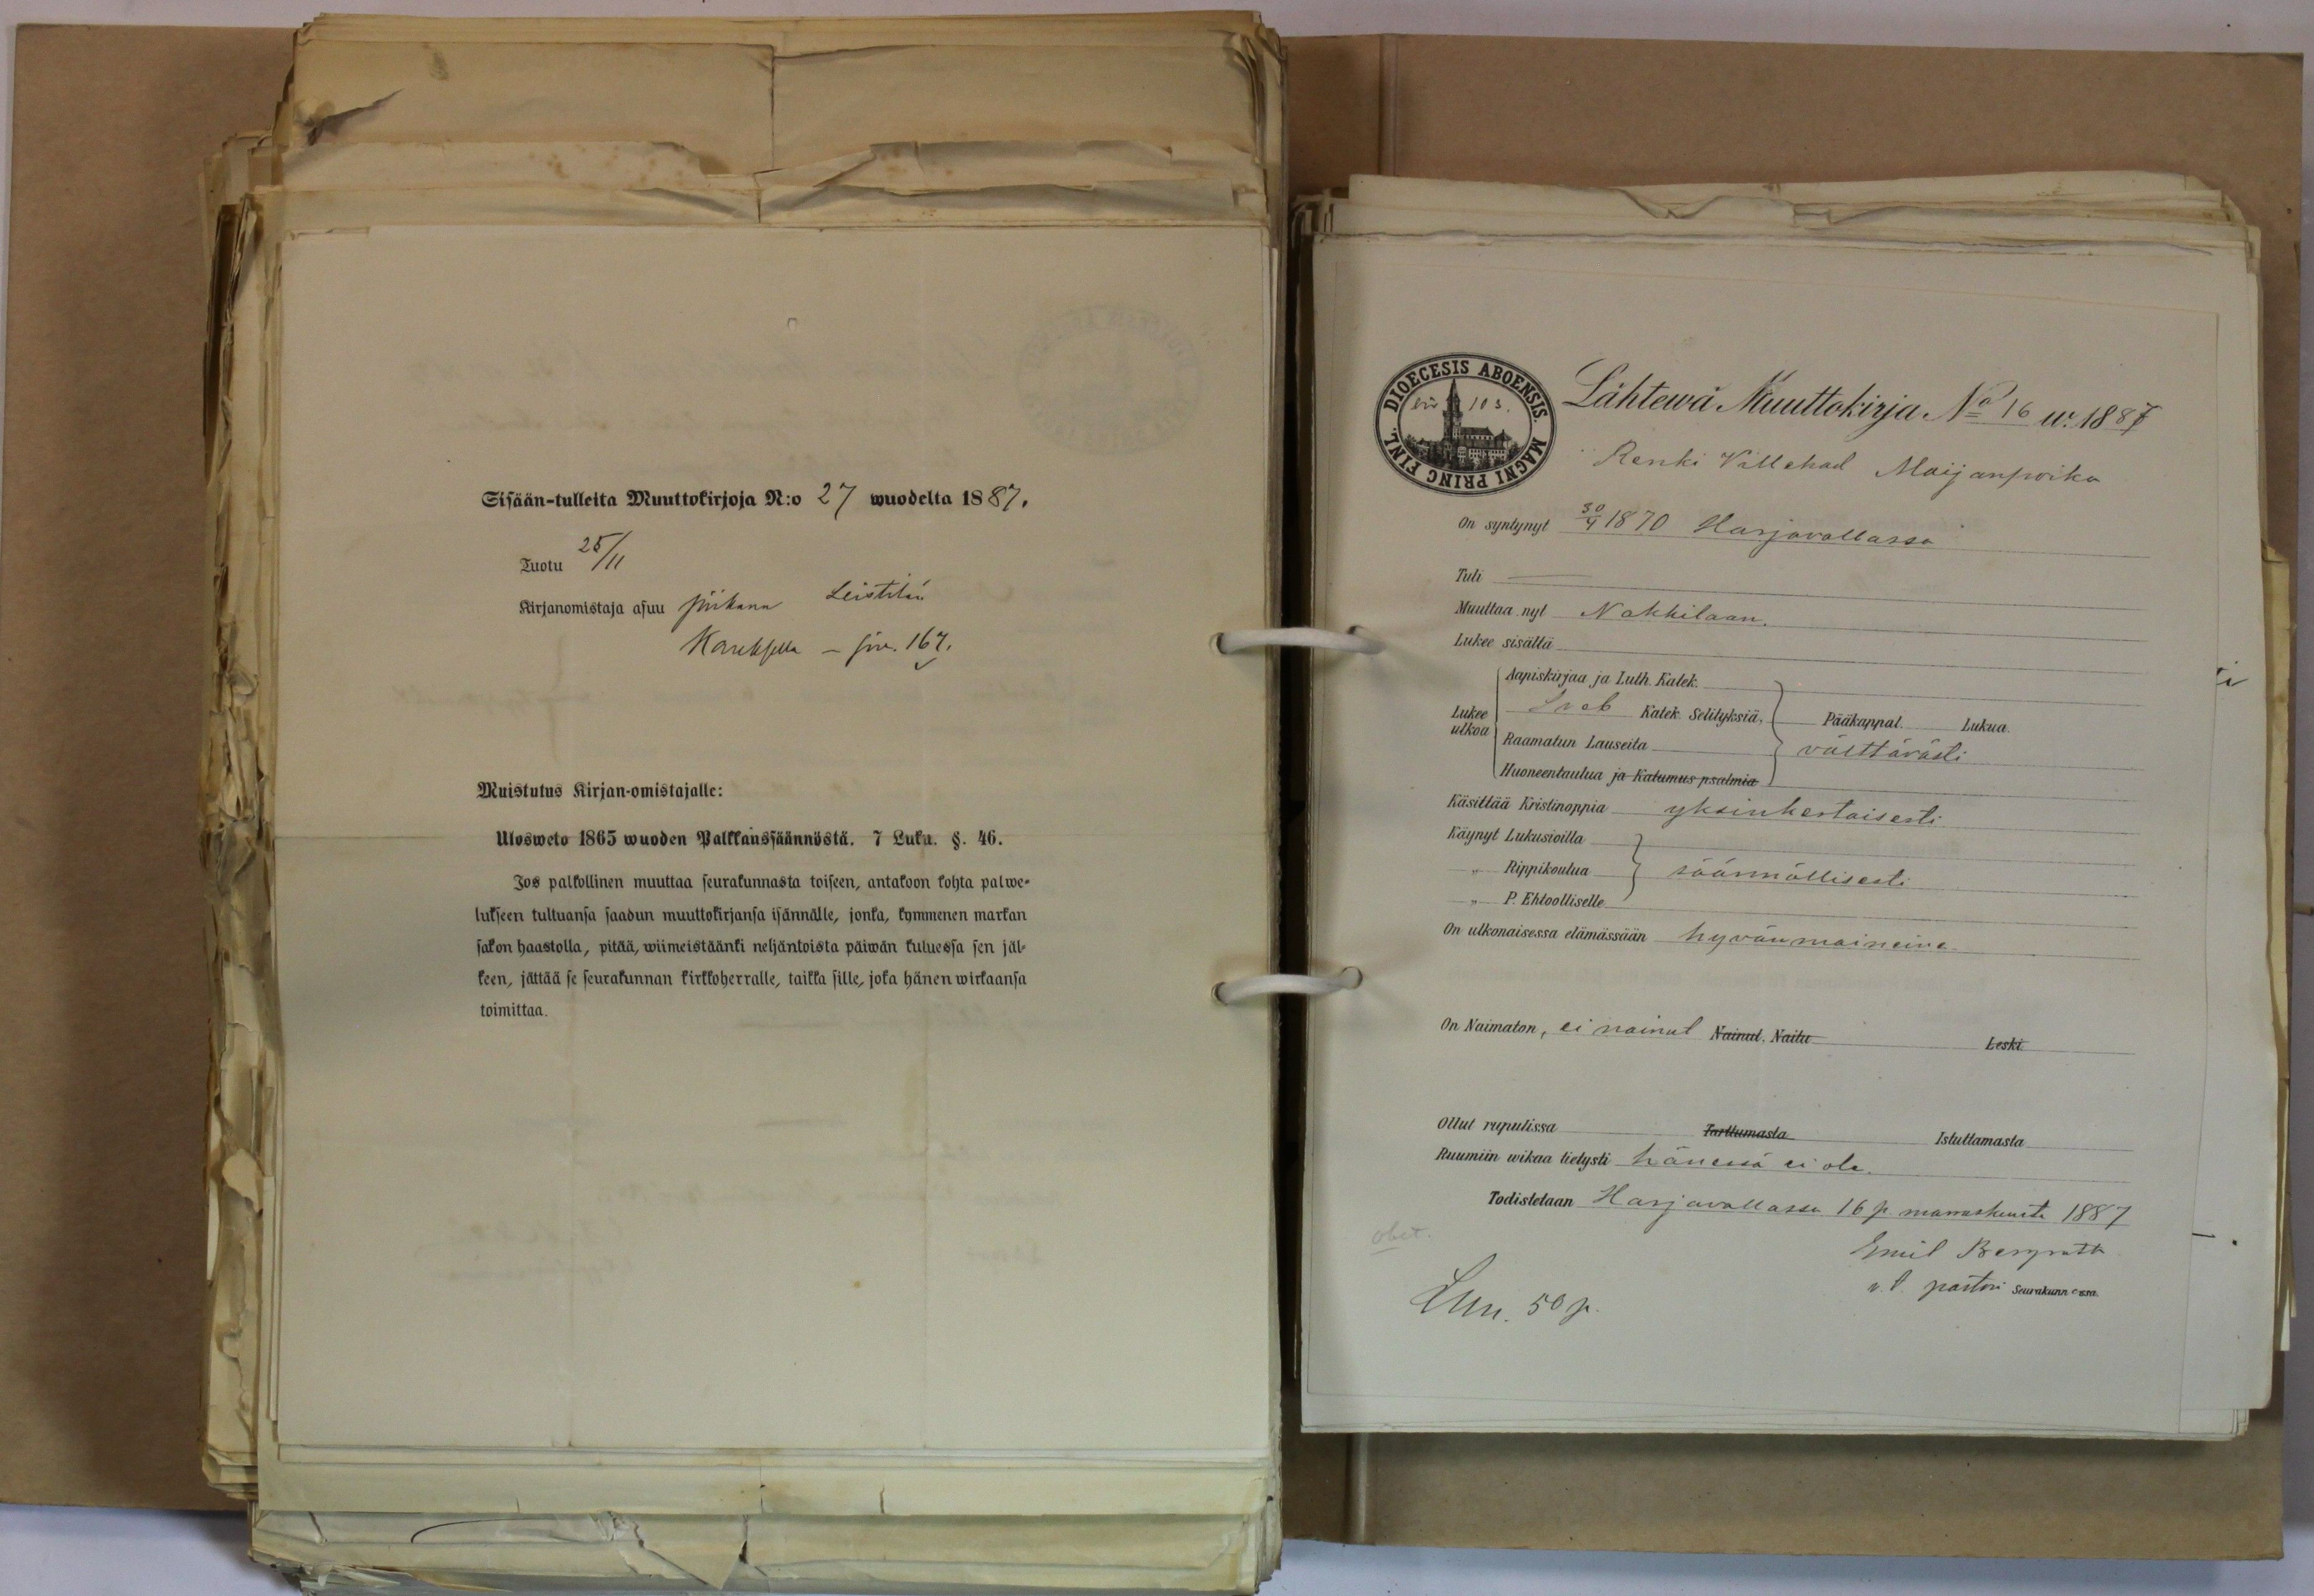 Sisään-tulleita Muuttokirjoja N:o 27 wuodelta 1887.
Tuotu 25/11
Kirjanomistaja asuu piikana Leistilän
siv. 167.
Muistutus Kirjan-omistajalle:
Ulosweto 1865 wuoden Palkkaussäännöstä. 7 Luku. §. 46.
Jos palkollinen muuttaa seurakunnasta toiseen, antakoon kohta palwe-
lukseen tultuansa saadun muuttokirjansa isännälle, jonka, kymmenen markan
sakon haastolla, pitää, wiimeistäänki neljäntoista päiwän kuluessa sen jäl-
keen, jättää se seurakunnan kirkkoherralle, taikka sille, joka hänen wirkaansa
toimittaa.
DIOECESIS ABOENSIS. MAGNI PRINC FINL.
siv 103.
Lähtewä Muuttokirja No 16 w. 1887
Renki Villehad Maijanpoika
On syntynyt 30/4 1870 Harjavallassa
Tuli
Muuttaa nyt Nakkilaan.
Lukee sisältä
Aapiskirjaa ja Luth. Katek.
Lukee ulkoa Sveb Katek. Selityksiä, Pääkappal. Lukua.
Raamatun Lauseita välttävästi
Huoneentaulua ja Katumus-psalmia
Käsittää Kristinoppia yksinkertaisesti
Käynyt Lukusioilla
„ Rippikoulua säännöllisesti
„ P. Ehtoolliselle
On ulkonaisessa elämässään hyvänmaineine
On Naimaton, ei nainut Nainut. Naitu Leski
Ollut rupulissa Tarttumasta Istuttamasta
Ruumiin wikaa tietysti hänessä ei ole.
Todistetaan Harjavallassa 16 p. marraskuuta 1887
Emil Bergroth
v. t. pastori Seurakunnassa.
Lun. 50 p.